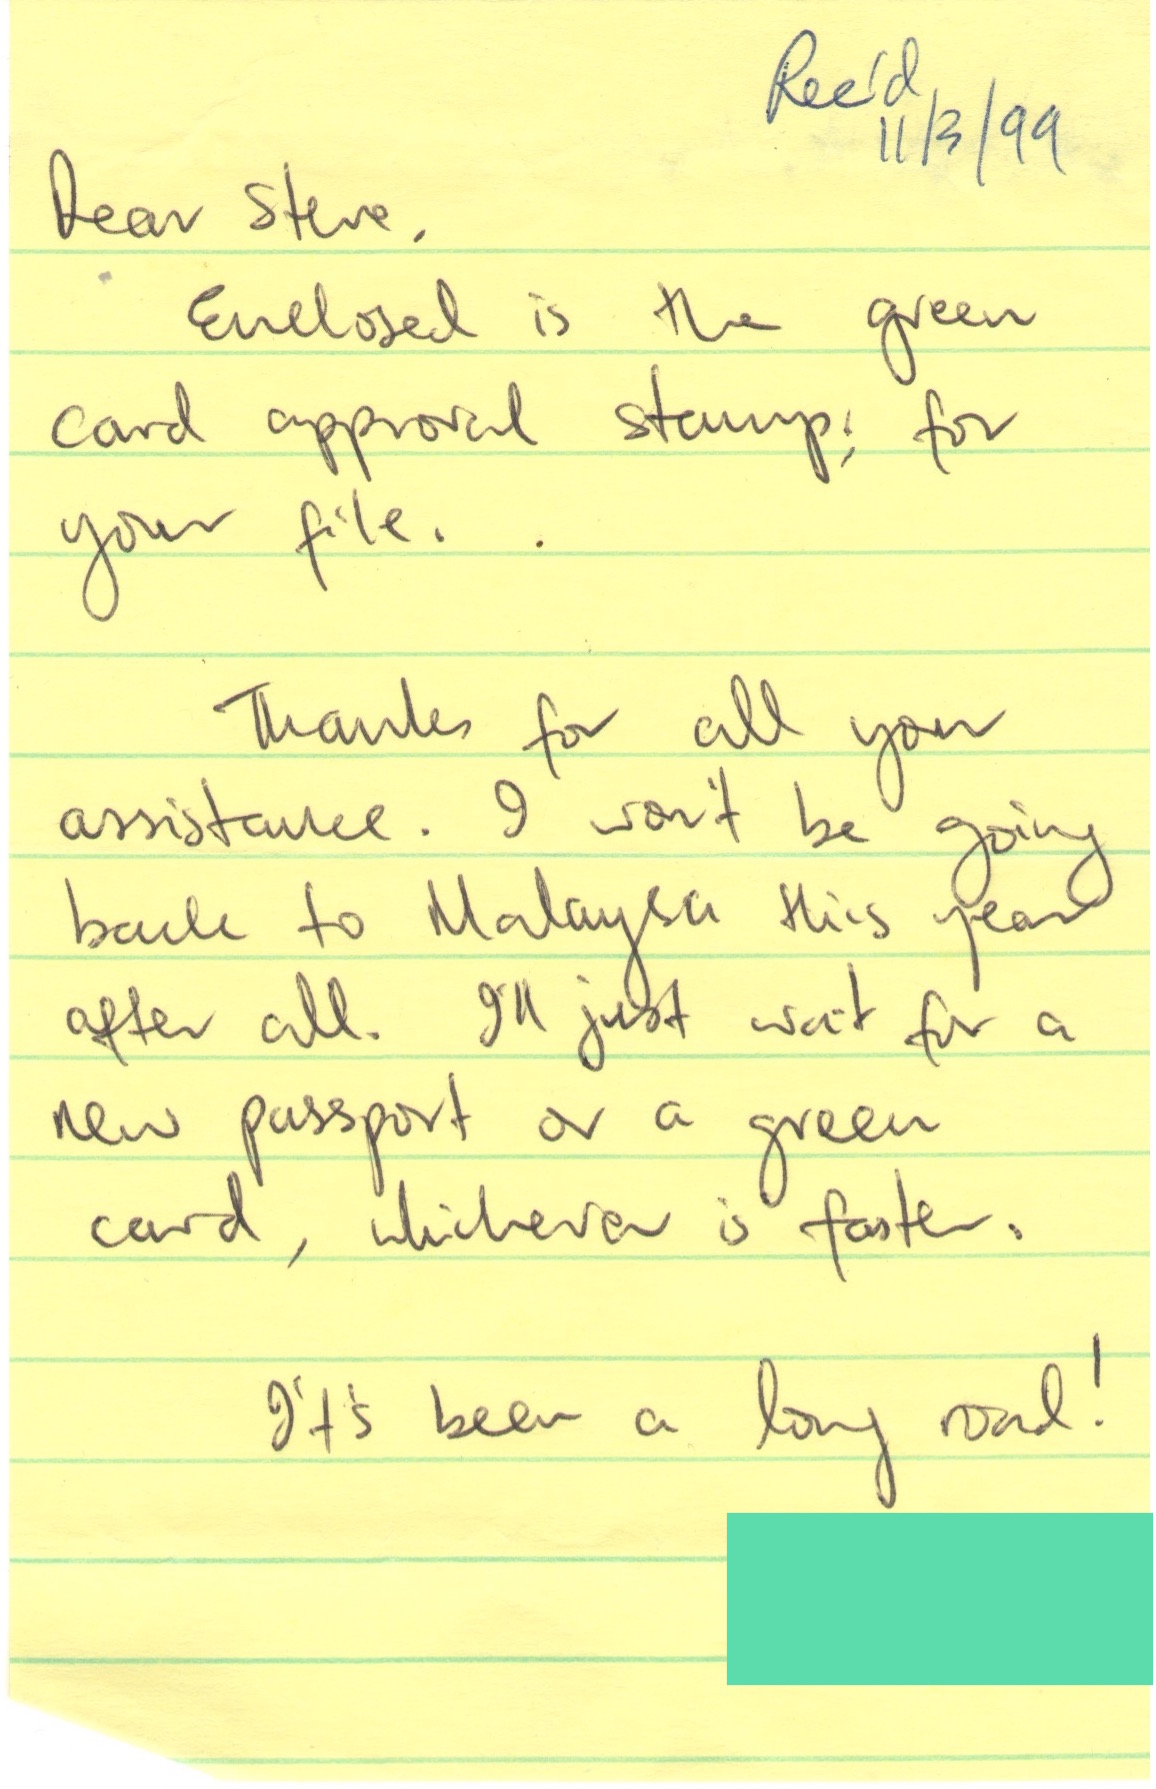 Rec'd
11/3/99
Dear Steve,
Enclosed is the green
card approval stamp; for
your file.
Thanks for all your
assistance. I won't be going
back to Malaysia this year
after all. I'll just wait for a
new passport or a green
card, whichever is faster.
It's been a long road!